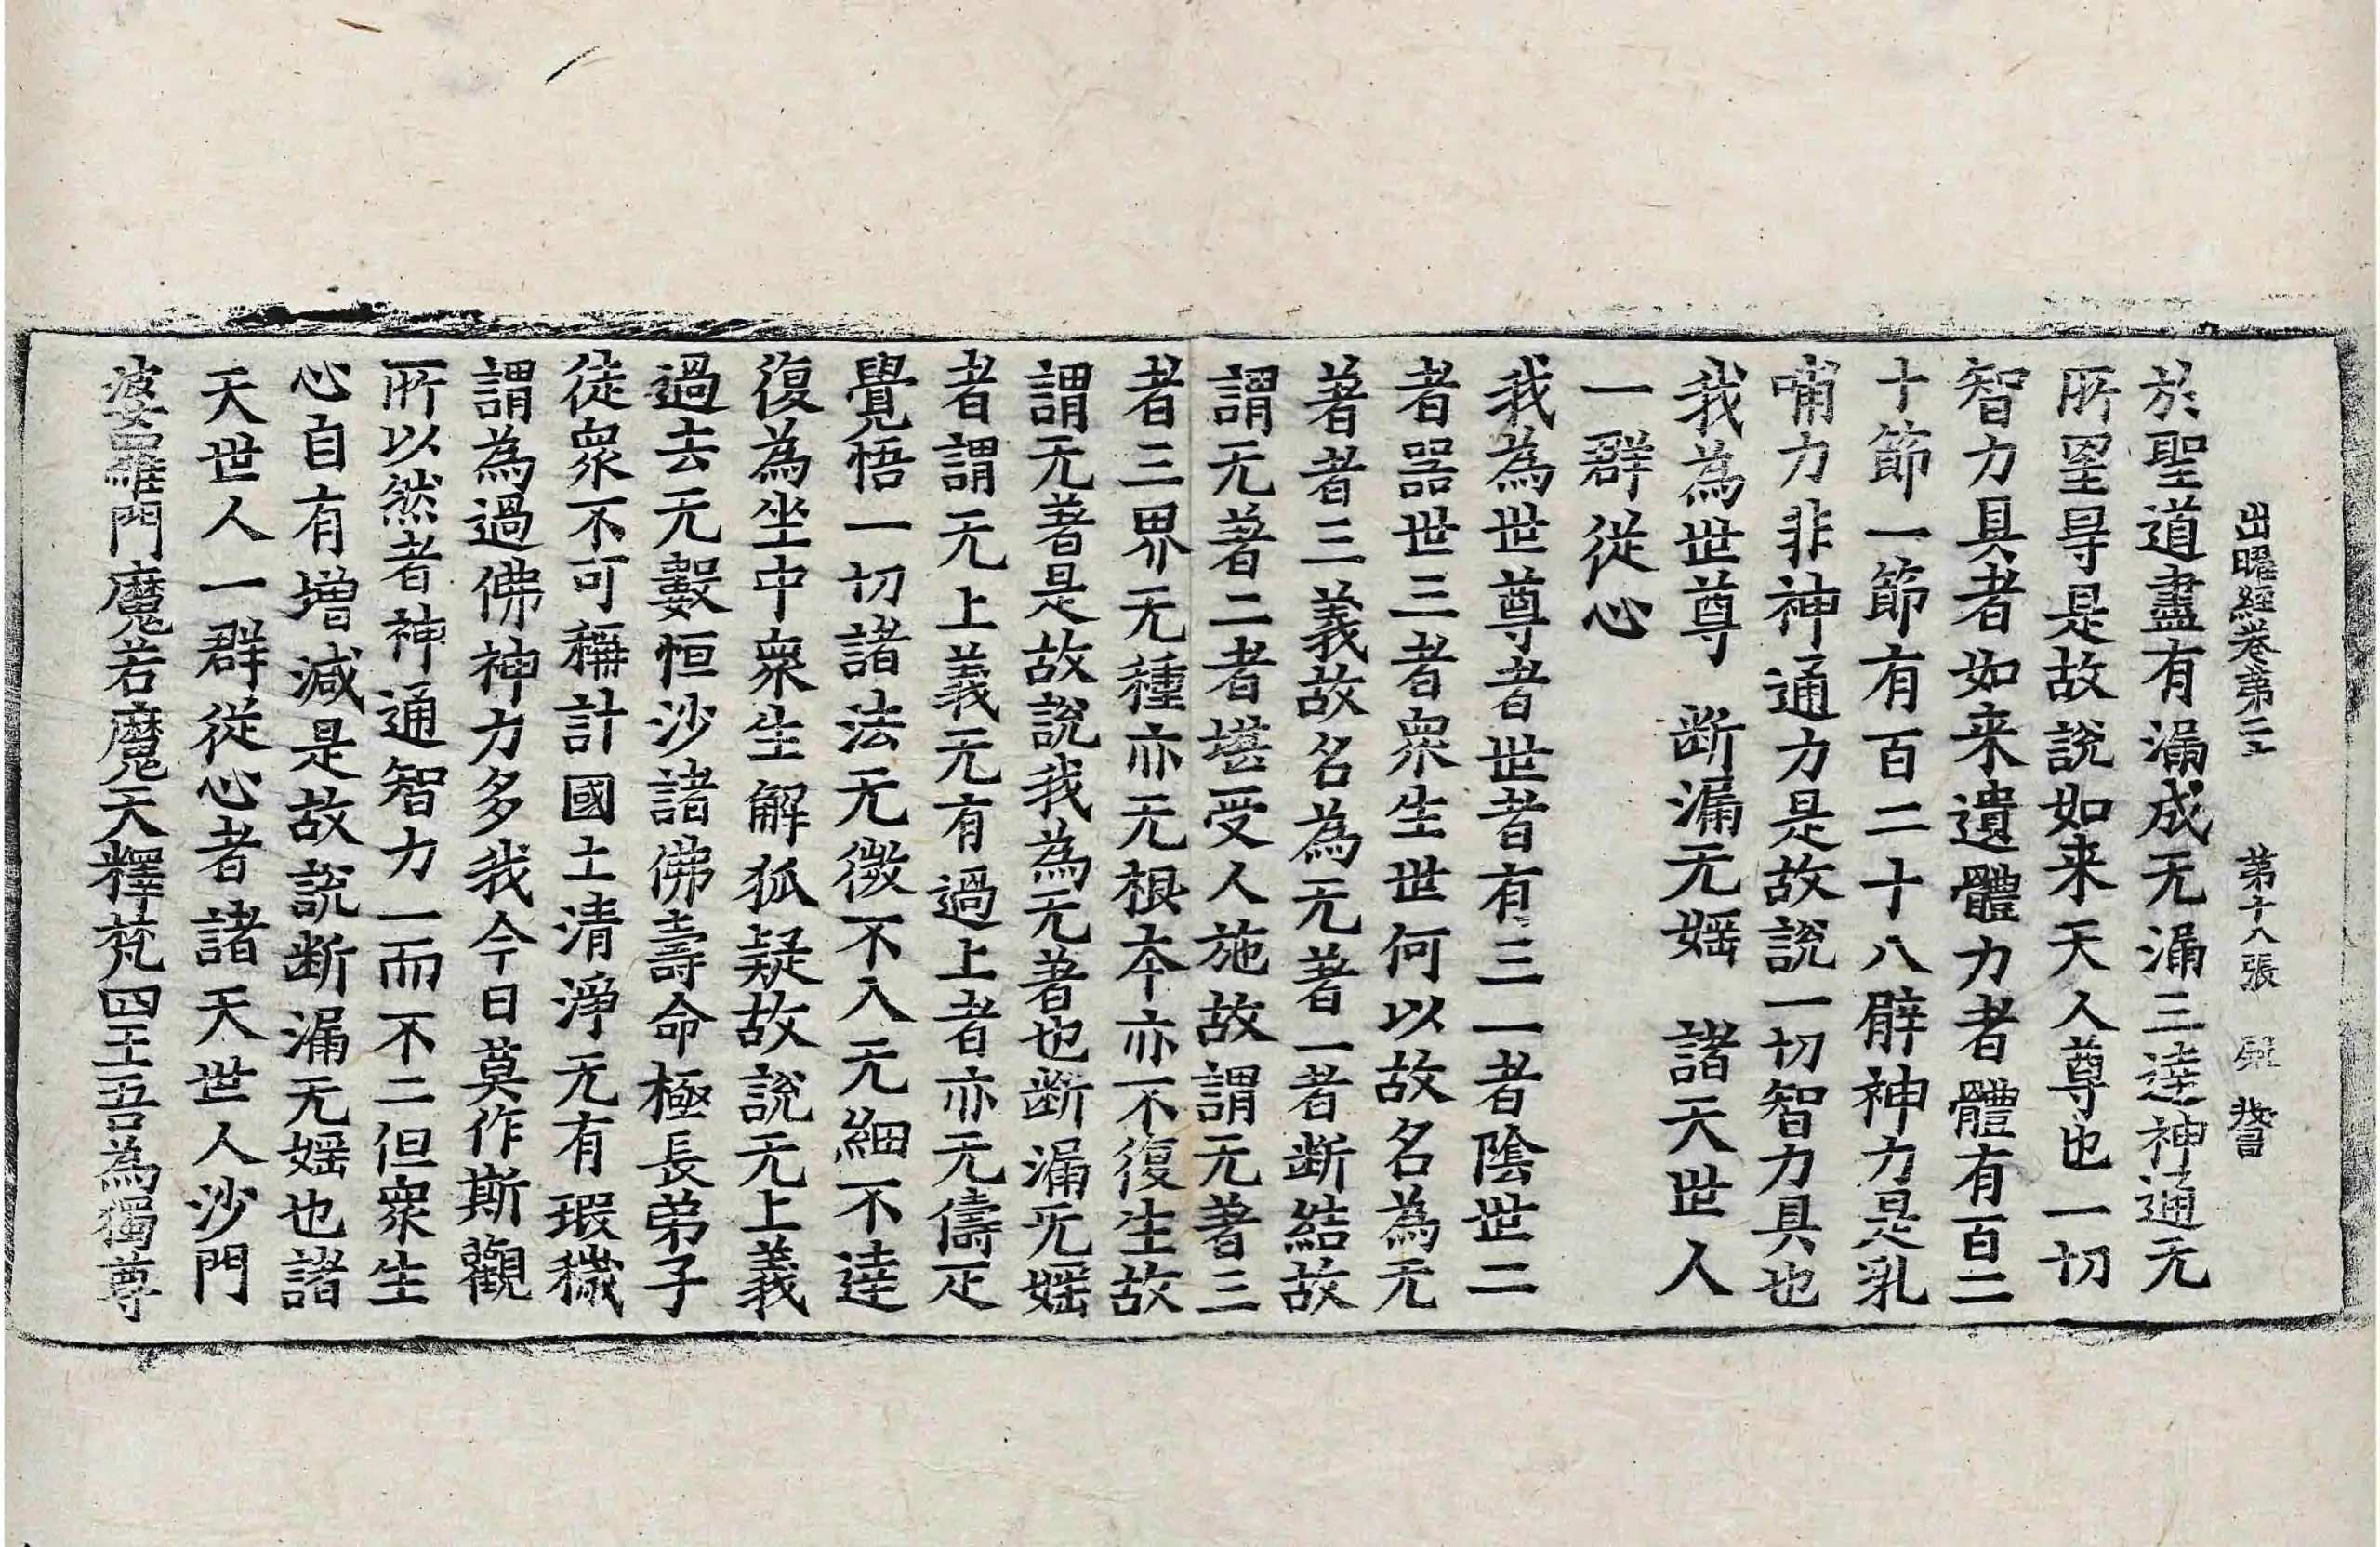 出曜經卷第二十 第十八張
於聖道盡有漏成无漏三達神通无
所罣㝵是故說如来天人尊也一切
智力具者如来遺體力者體有百二
十節一節有百二十八臂神力是乳
哺力非神通力是故說一切智力具也
我為世尊 断漏无婬 諸天世人
一群從心
我為世尊者世者有三一者陰世二
者器世三者衆生世何以故名為无
著者三義故名為无著一者断結故
謂无著二者堪受人施故謂无著三
者三界无種亦无根本亦不復生故
謂无著是故說我為无著也断漏无婬
者謂无上義无有過上者亦无儔疋
覺悟一切諸法无微不入无細不達
復為坐中衆生解狐疑故說无上義
過去无數恒沙諸佛壽命極長弟子
徒衆不可稱計國土清淨无有瑕穢
謂為過佛神力多我今日莫作斯觀
所以然者神通智力一而不二但衆生
心自有増減是故說断漏无婬也諸
天世人一群從心者諸天世人沙門
婆羅門魔若魔天釋梵四王吾為獨尊